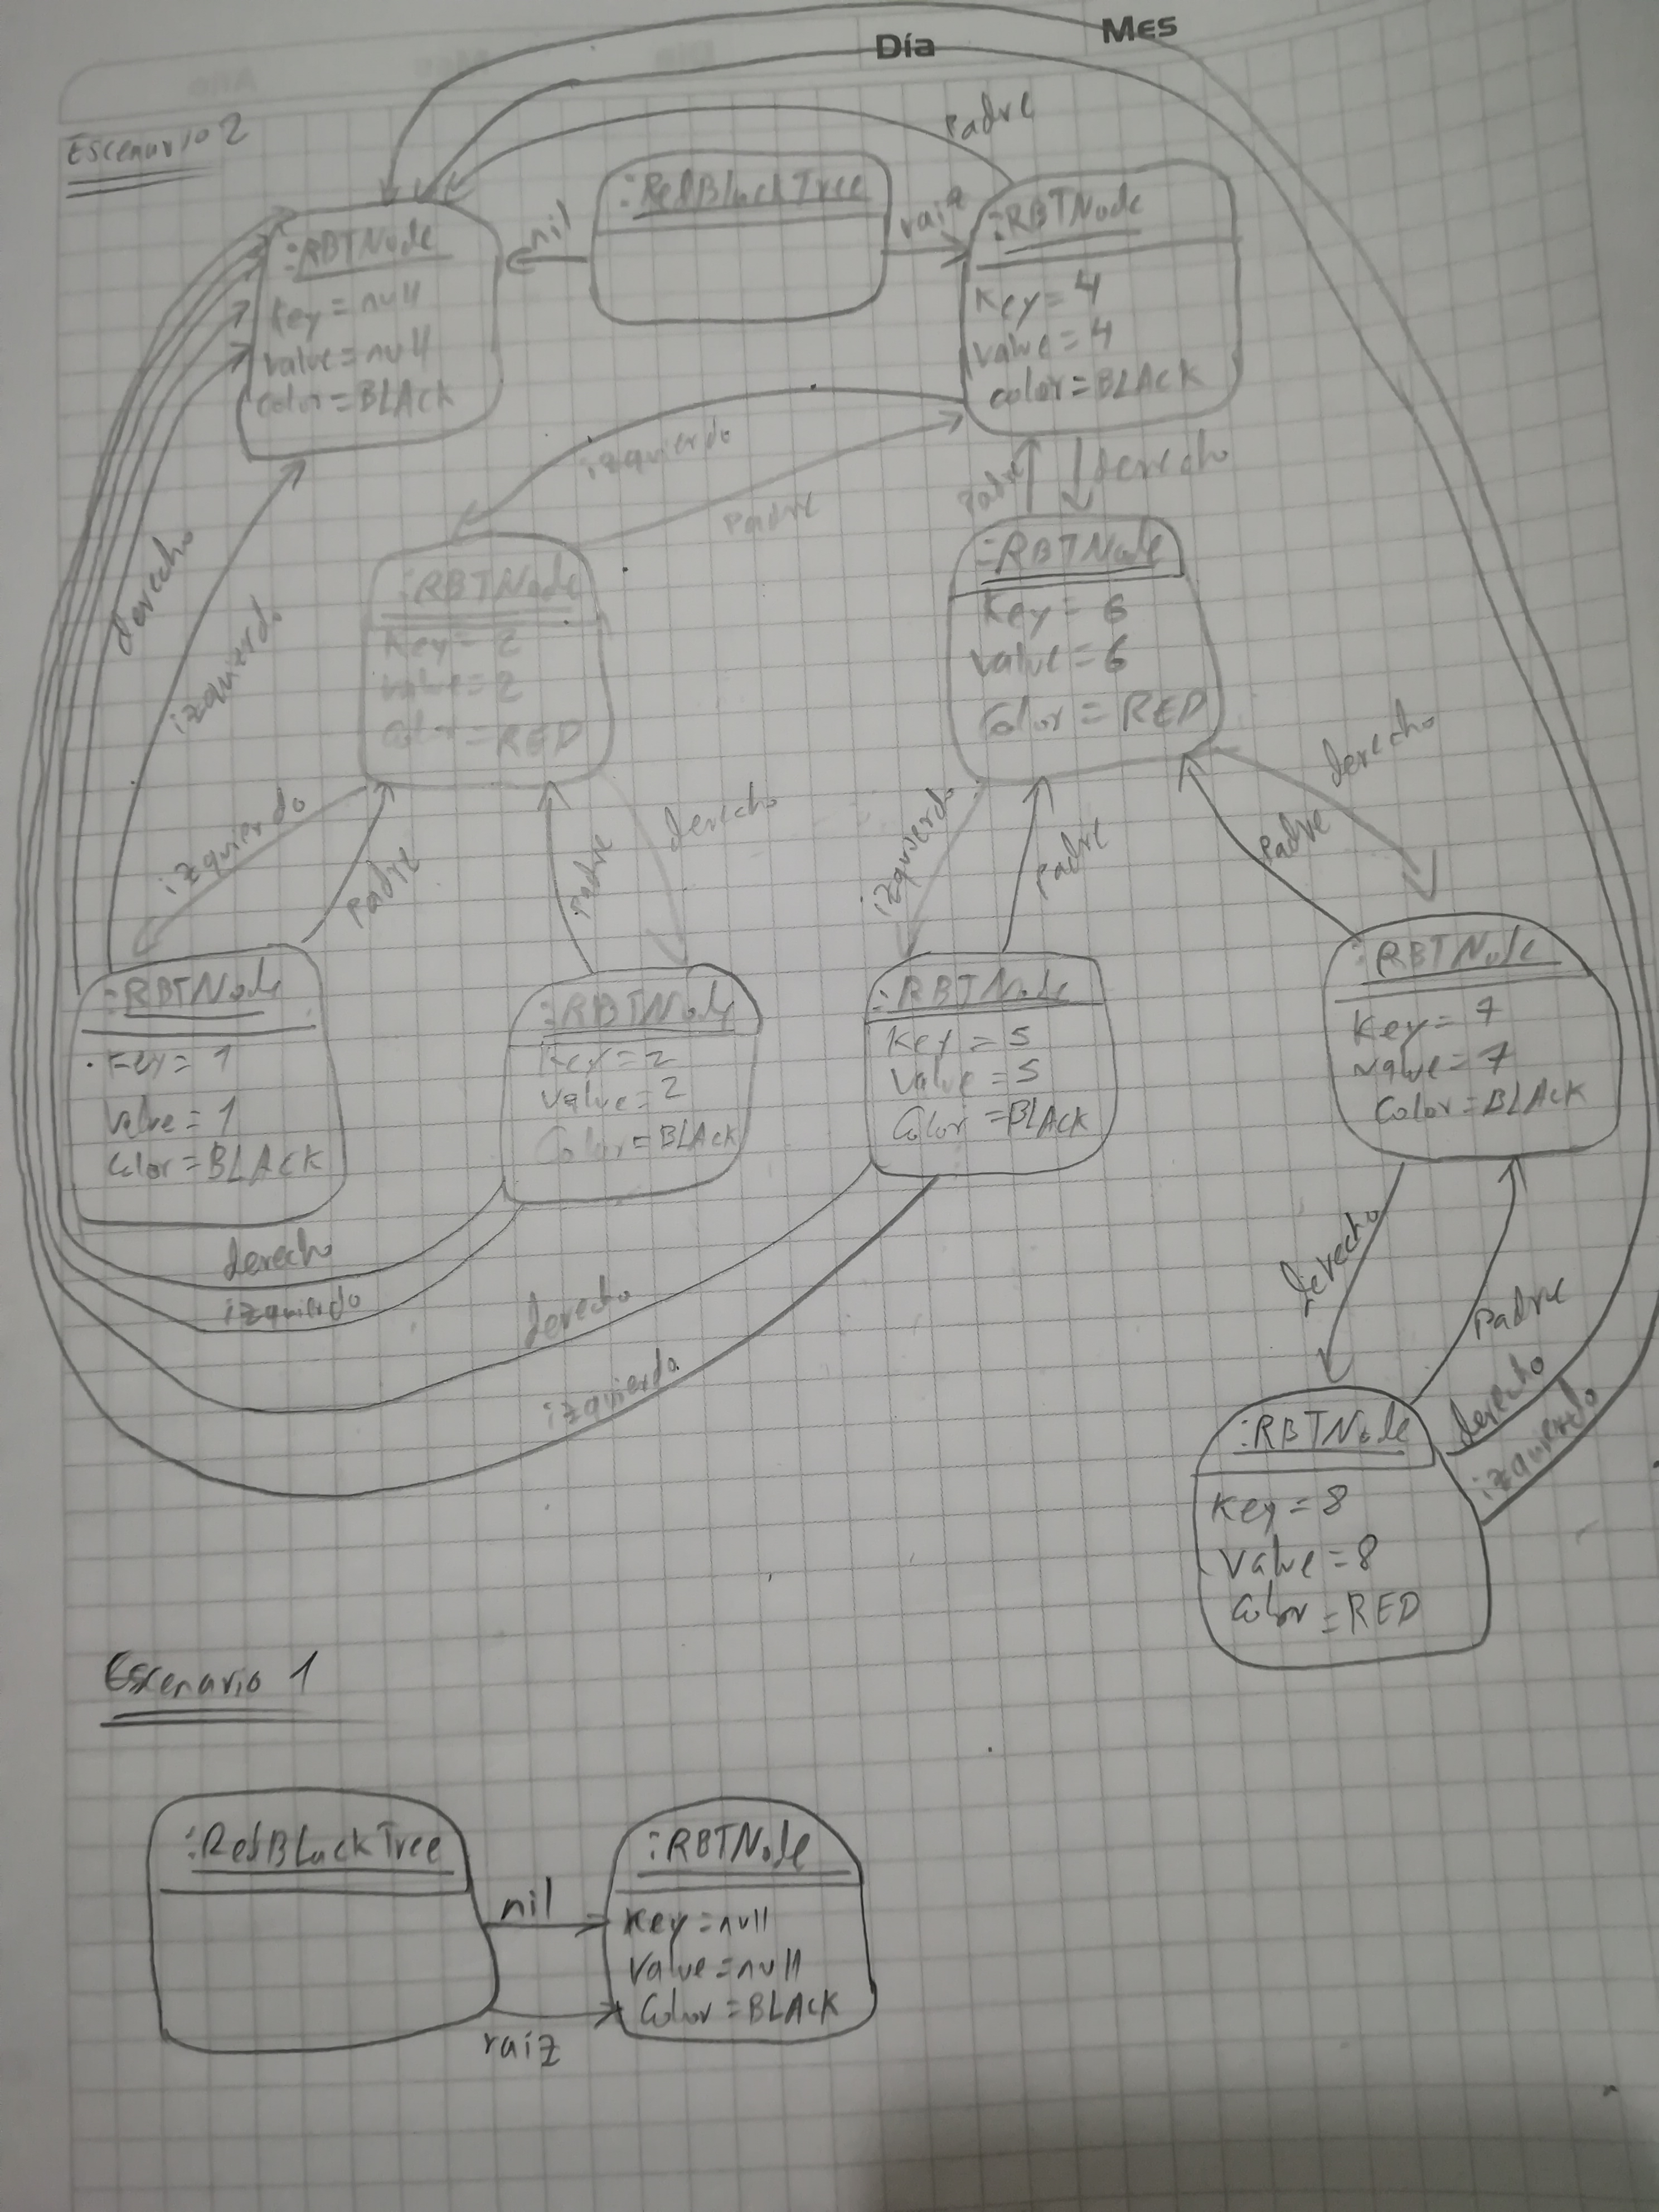 Día
Mes
Escenario 2
Padre
:RBTNode
key = null
value = null
color = BLACK
nil
:RedBlackTree
raiz
:RBTNode
Key = 4
value = 4
color = BLACK
izquierdo
Padre
Padre
derecho
derecho
izquierdo
:RBTNode
Key = 2
value = 2
Color = RED
:RBTNode
Key = 6
value = 6
Color = RED
izquierdo
Padre
Padre
derecho
izquierdo
Padre
Padre
derecho
:RBTNode
Key = 1
Value = 1
Color = BLACK
:RBTNode
Key = 2
value = 2
Color = BLACK
:RBTNode
Key = 5
Value = 5
Color = BLACK
:RBTNode
Key = 7
value = 7
Color = BLACK
derecho
izquierdo
derecho
izquierdo
derecho
Padre
derecho
izquierdo
:RBTNode
Key = 8
Value = 8
Color = RED
Escenario 1
:RedBlackTree
nil
raíz
:RBTNode
Key = null
Value = null
Color = BLACK